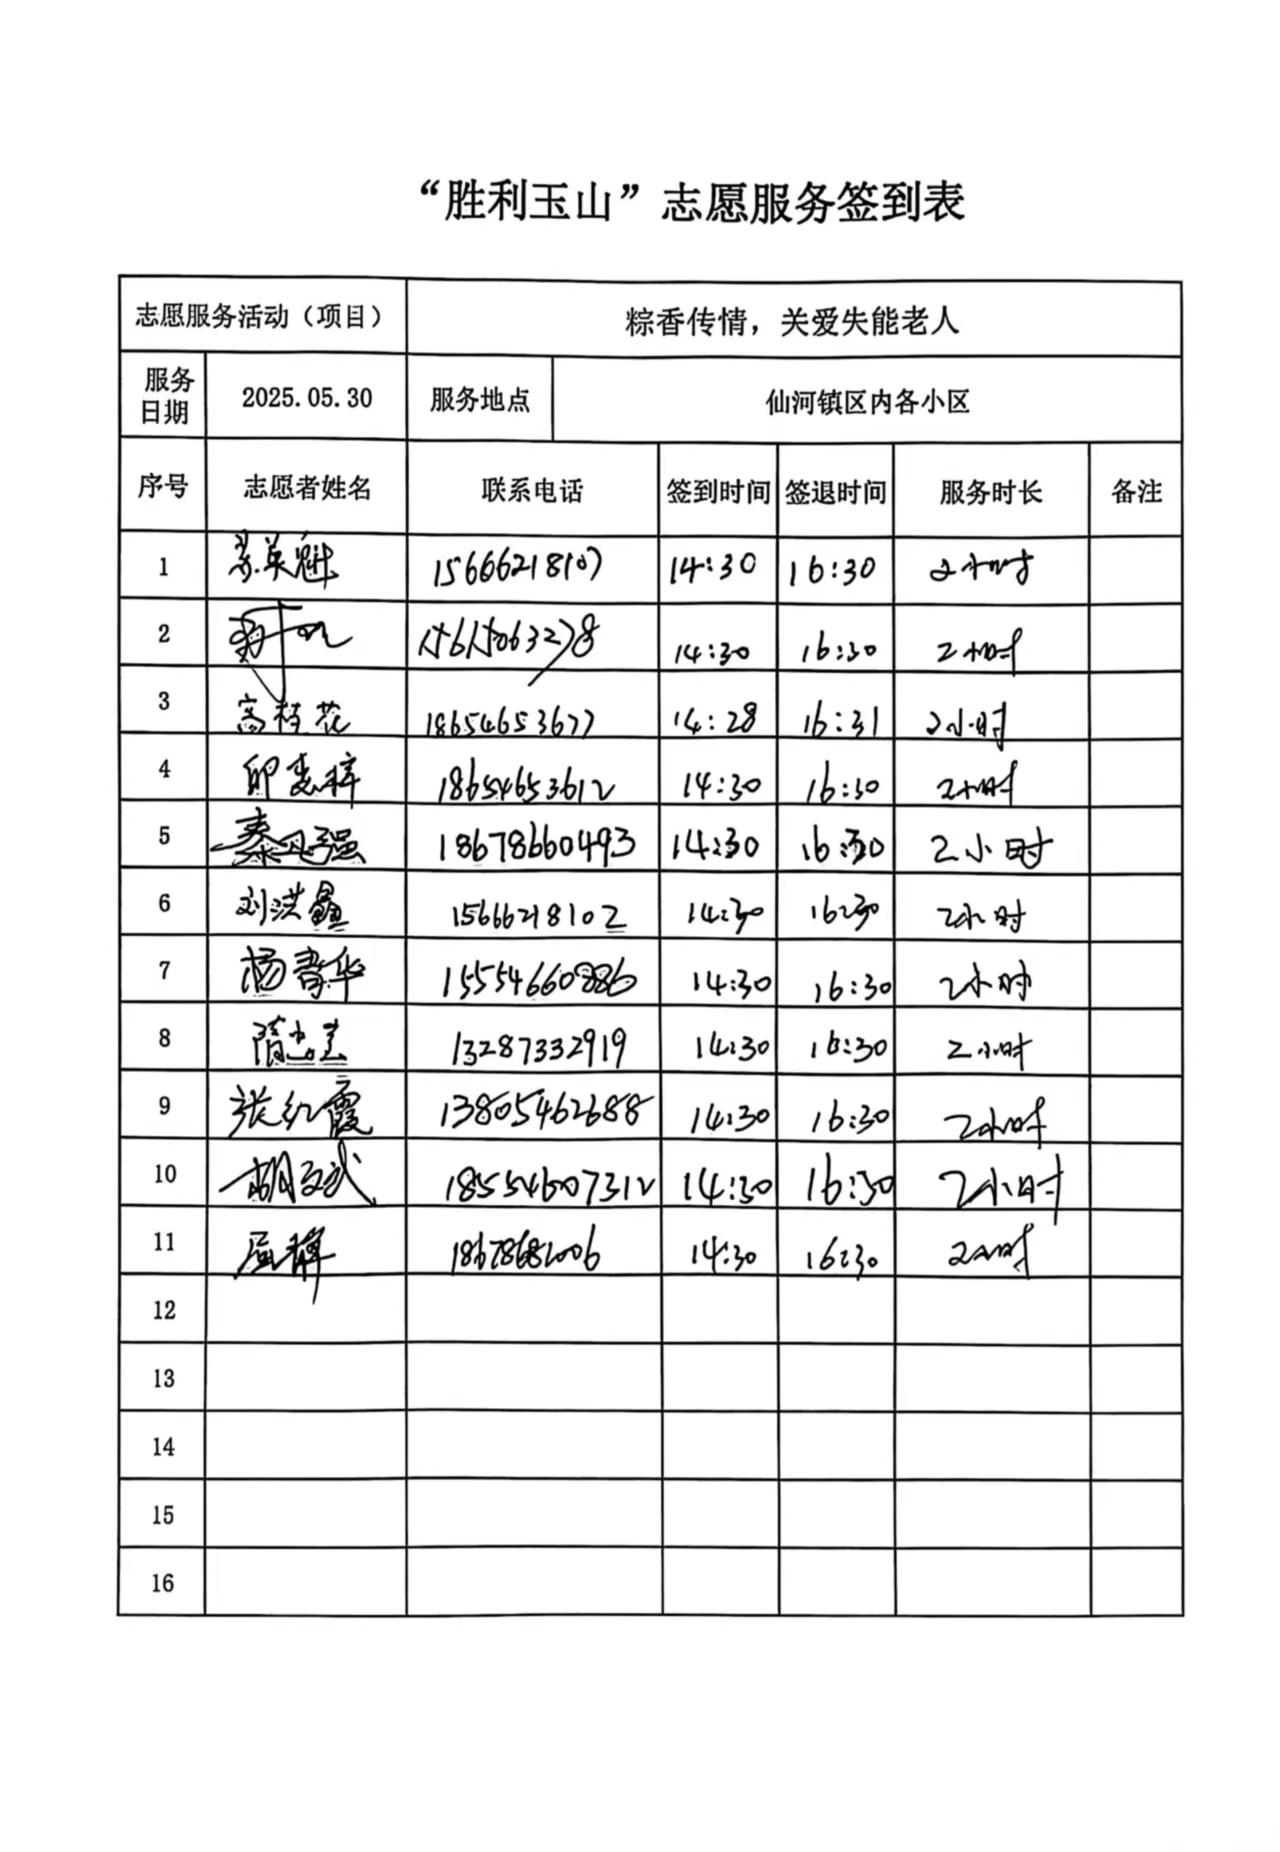 “胜利玉山”志愿服务签到表
志愿服务活动（项目） 粽香传情，关爱失能老人
服务日期 2025.05.30 服务地点 仙河镇区内各小区
序号 志愿者姓名 联系电话 签到时间 签退时间 服务时长 备注
1 15666218107 14:30 16:30 2小时
2 14:30 16:30 2小时
3 高桂花 18654653677 14:28 16:31 2小时
4 18654653612 14:30 16:30 2小时
5 18678660493 14:30 16:30 2小时
6 刘洪鑫 15666218102 14:30 16:30 2小时
7 杨青华 15554660886 14:30 16:30 2小时
8 13287332919 14:30 16:30 2小时
9 张红霞 13805462688 14:30 16:30 2小时
10 胡文武 18554607312 14:30 16:30 2小时
11 14:30 16:30 2小时
12
13
14
15
16